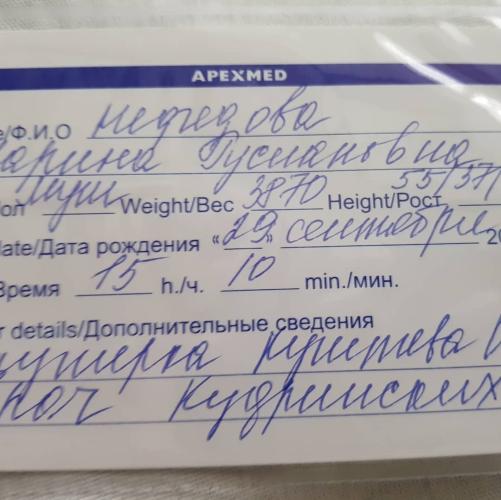 APEXMED
e/Ф.И.О Нефедова
арина Руслановна
ол муж Weight/Вес 3870 Height/Рост 55/37/
ate/Дата рождения «29» сентября 20
Время 15 h./ч. 10 min./мин.
r details/Дополнительные сведения
Кушева
Кудринских